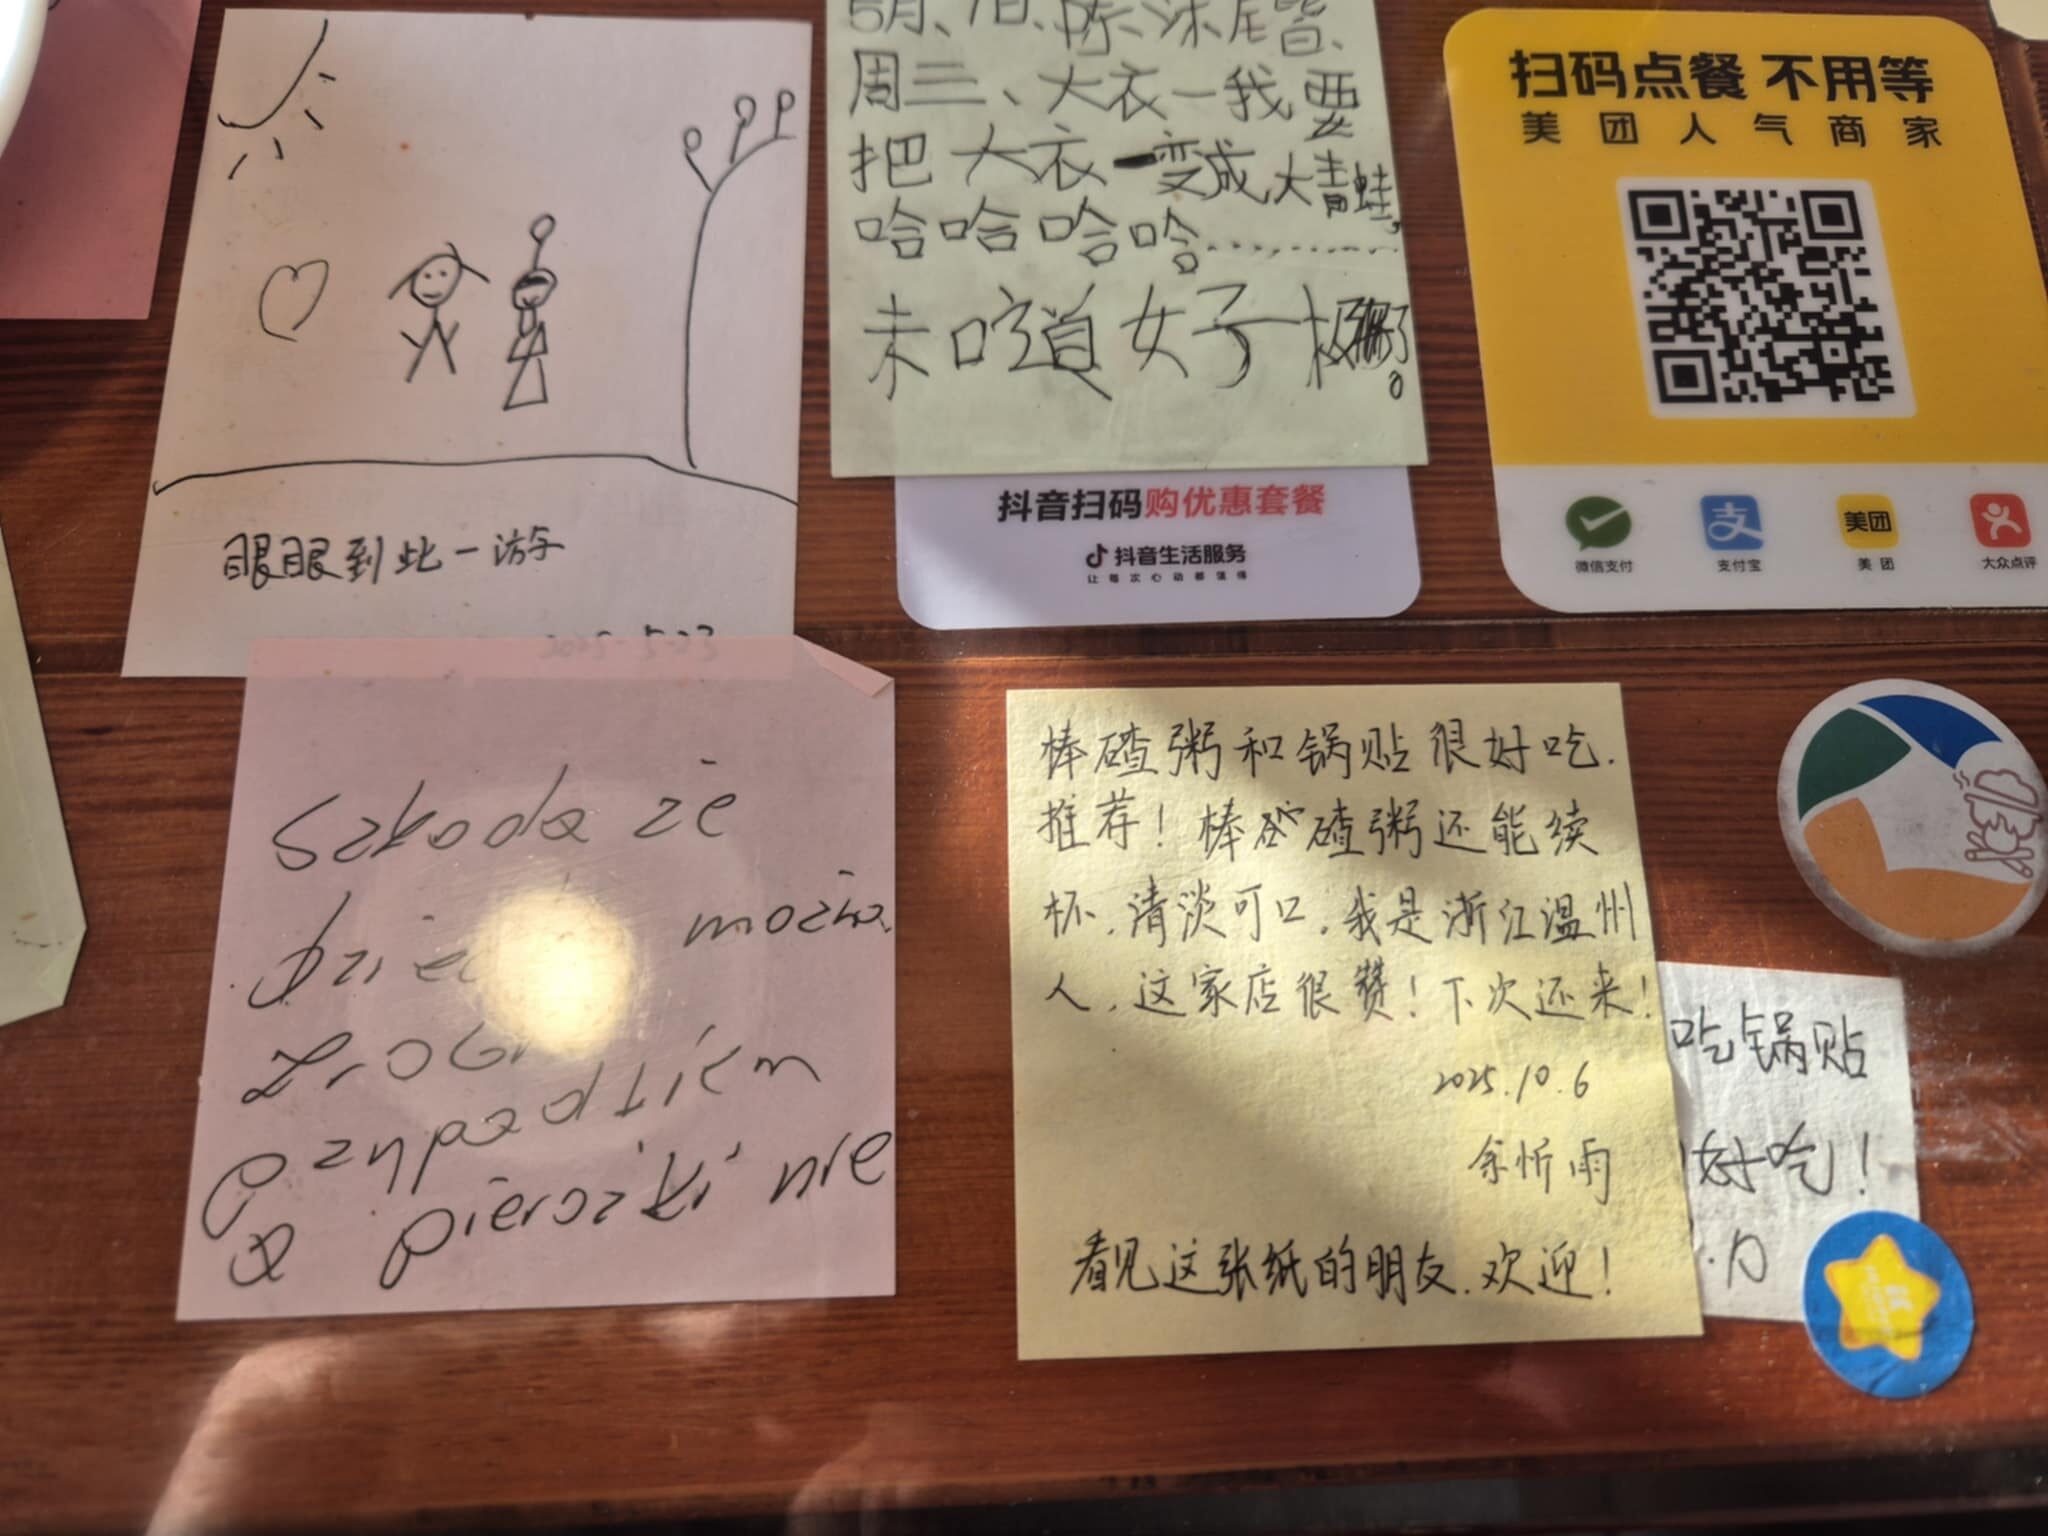 周三、大衣一我要
把大衣一变成大青蛙,
哈哈哈哈............
未 道女子
扫码点餐 不用等
美团人气商家
微信支付
支付宝
美团
美团
大众点评
抖音扫码购优惠套餐
抖音生活服务
让每次心动都值得
眼眼到此一游
2025.5.23
Szkoda że
można
zr
a pierożki nie
棒碴粥和锅贴很好吃.
推荐!棒碴粥还能续
杯.清淡可口.我是浙江温州
人.这家店很赞!下次还来!
2025.10.6
余忻雨
看见这张纸的朋友.欢迎!
吃锅贴
好吃!